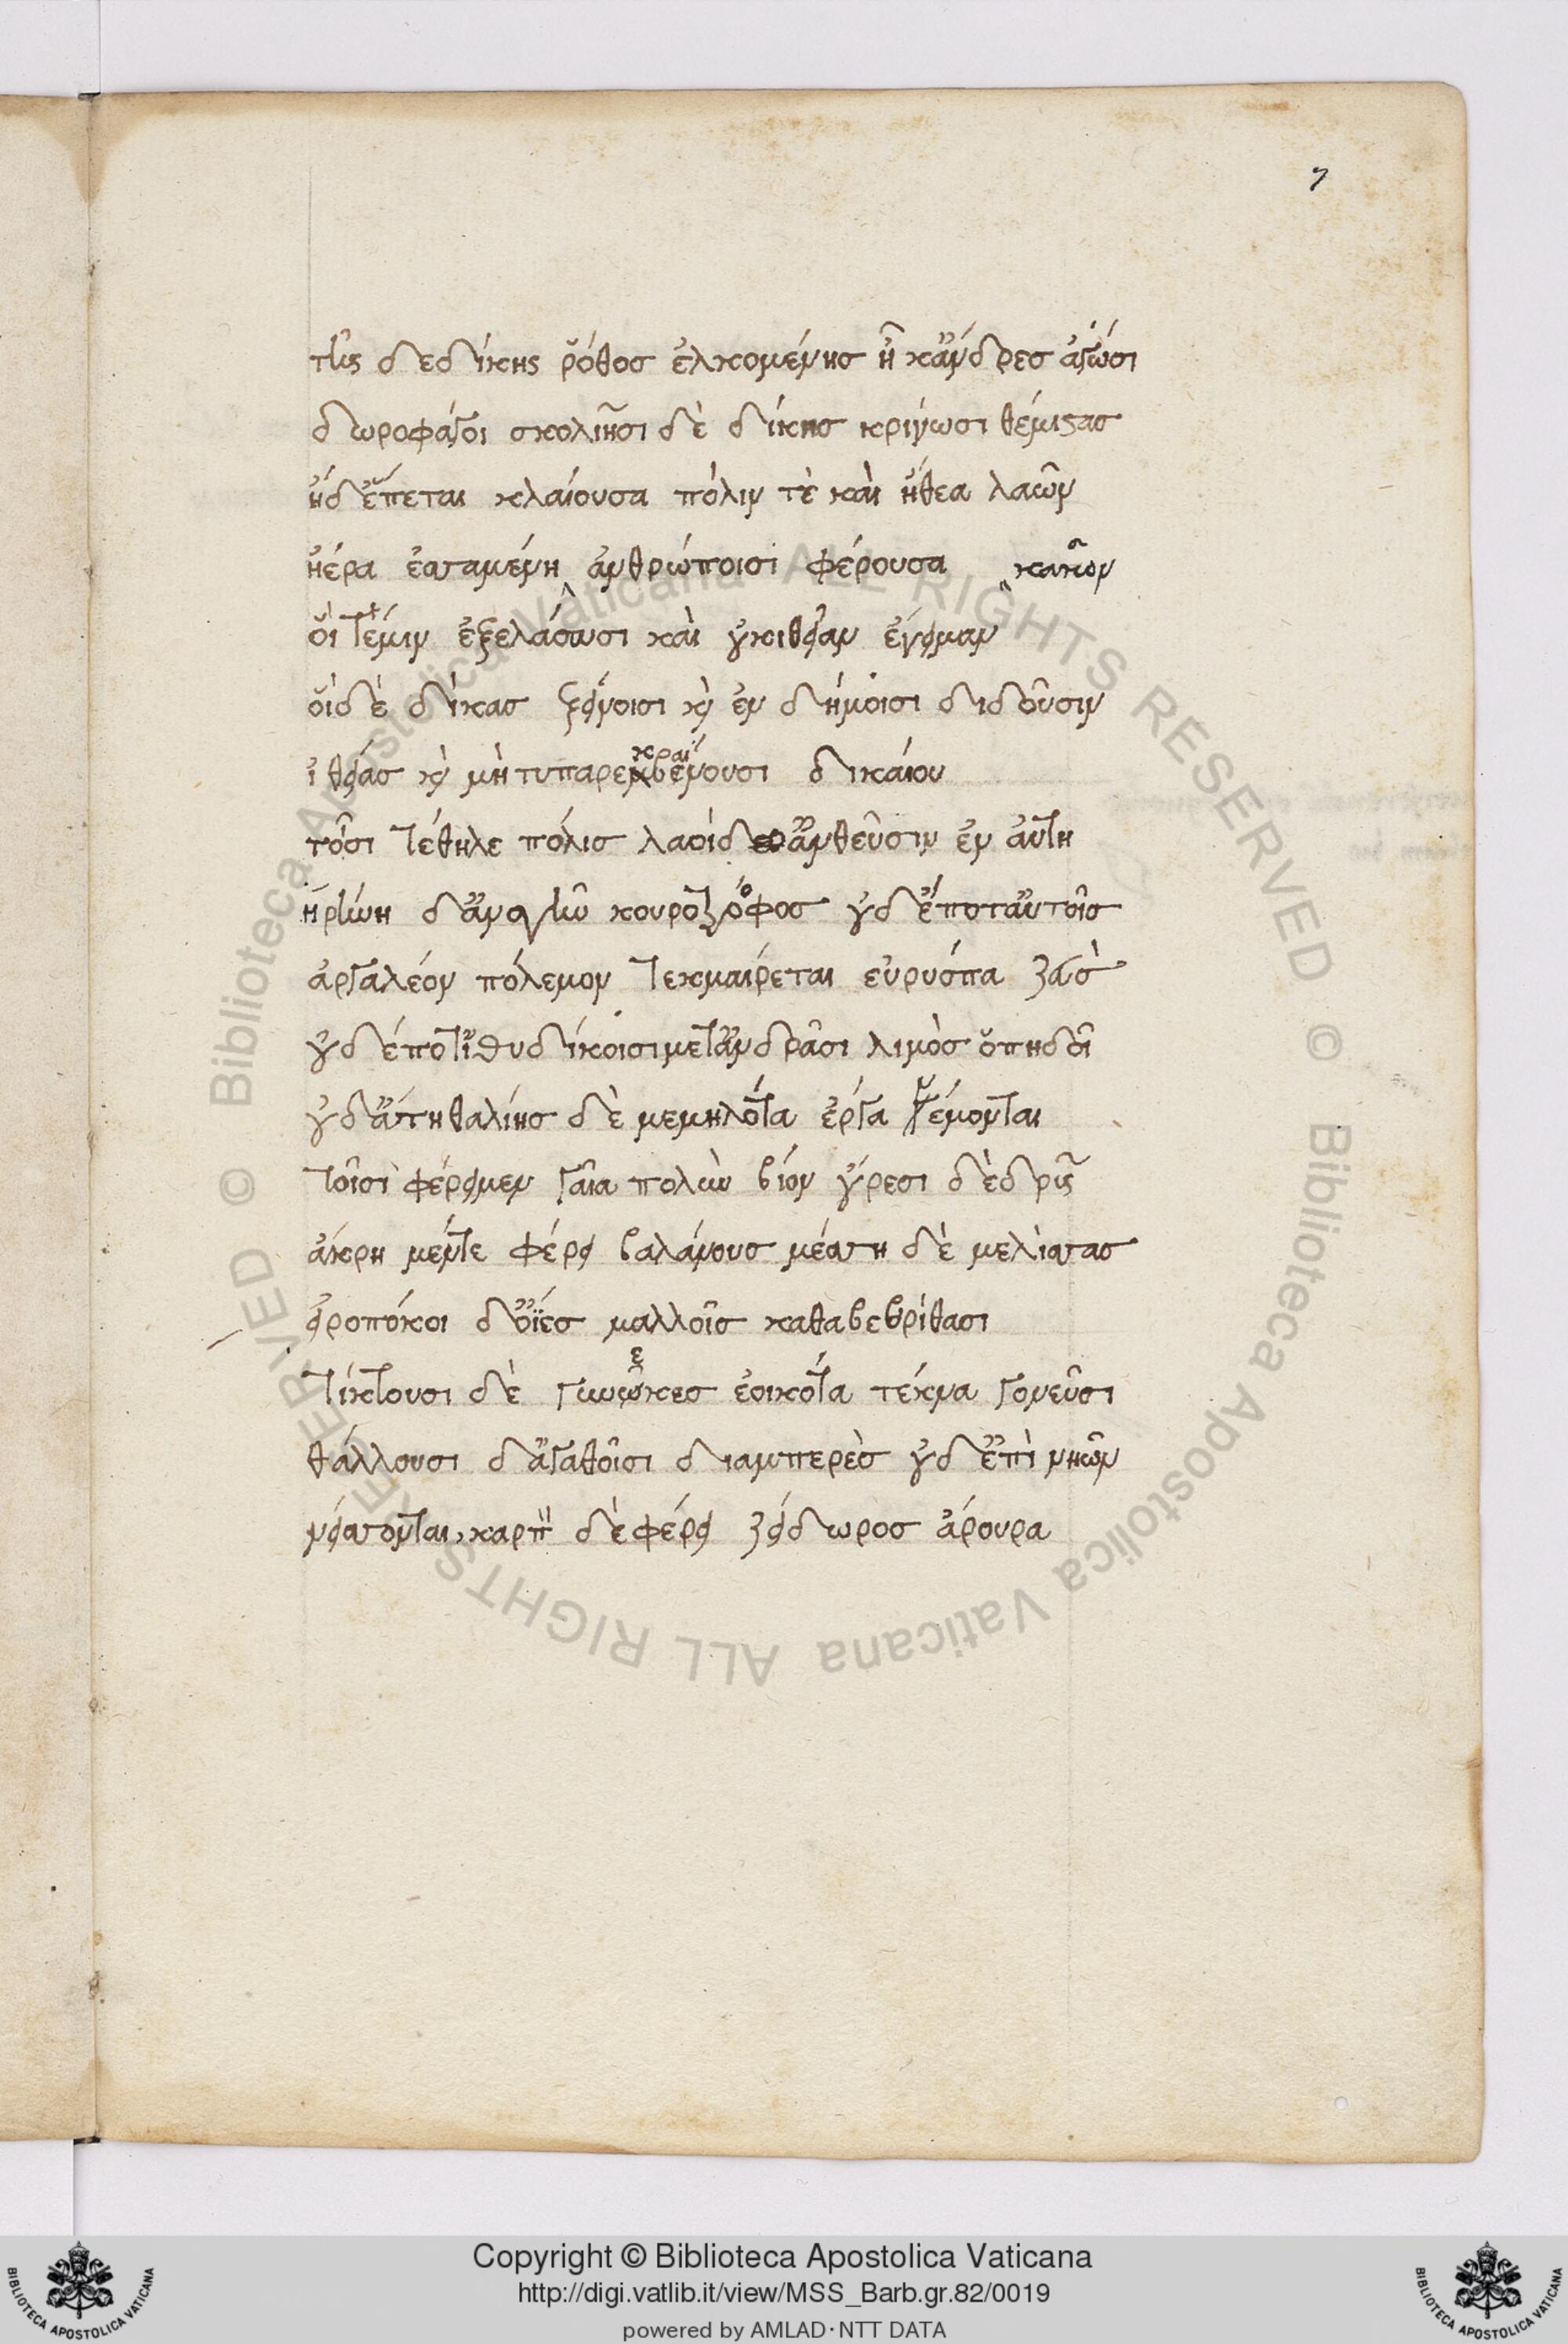 7
τῆς δεδίκης ῥόθος ἑλκομένης ἧ κἄνδρες ἀγώσι
δωροφάγοι σκολιῆσι δὲ δίκης κρίνωσι θέμιστας
ἡδἕπεται κλαίουσα πόλιν τὲ καὶ ἤθεα λαῶν
ἠέρα ἑσσαμένη ἀνθρώποισι φέρουσα κακὸν
οἵ τέμιν ἐξελάσωσι καὶ οὐκιθεῖαν ἔνειμαν
οἵδὲ δίκας ξείνοισι καὶ ἐν δήμοισι διδοῦσιν
ἰθείας καὶ μὴ τυπαρεκβαίνουσι δικαίου
τοῖσι τέθηλε πόλις λαοίδεἀνθεῦσιν ἐν ἀυτῆ
ἠρίωη δἄνα γῆν κουροτρόφος οὐδέποταὐτοῖς
ἀργαλέον πόλεμον τεκμαίρεται εὐρυόπα ζεὺς
οὐδέποτἰθυδίκοισιμετἄνδράσι λιμὸς ὀπηδοῖ
οὐδἄτη θαλίης δὲ μεμηλότα ἔργα νέμονται
τοῖσι φέρειμεν γαῖα πολὺν βίον οὔρεσι δὲδρῦς
ἄκρη μέντε φέρει βαλάνους μέσση δὲ μελίσσας
εἰροπόκοι δὄϊες μαλλοῖς καθαβεβρίθασι
τίκτουσι δὲ γυναῖκες ἐοικότα τέκνα γονεῦσι
θάλλουσι δἀγαθοῖσι διαμπερὲς οὐδἐπὶ νηῶν
νείσσονται, καρπὸν δὲφέρει ζείδωρος ἄρουρα
Copyright © Biblioteca Apostolica Vaticana
http://digi.vatlib.it/view/MSS_Barb.gr.82/0019
powered by AMLAD·NTT DATA